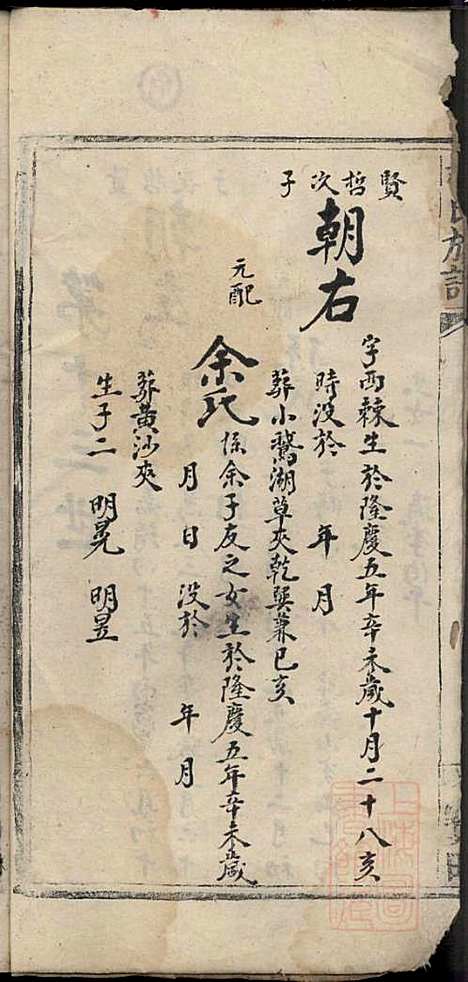 賢哲次子
朝右
字西棘生於隆慶五年辛未歲十月二十八亥
時没於 年 月
葬小鵞湖草夾乾巽兼巳亥
元配
余氏
係余子友之女生於隆慶五年辛未歲
月 日 没於 年 月
葬黄沙夾
生子二 明晃 明昱
氏族譜